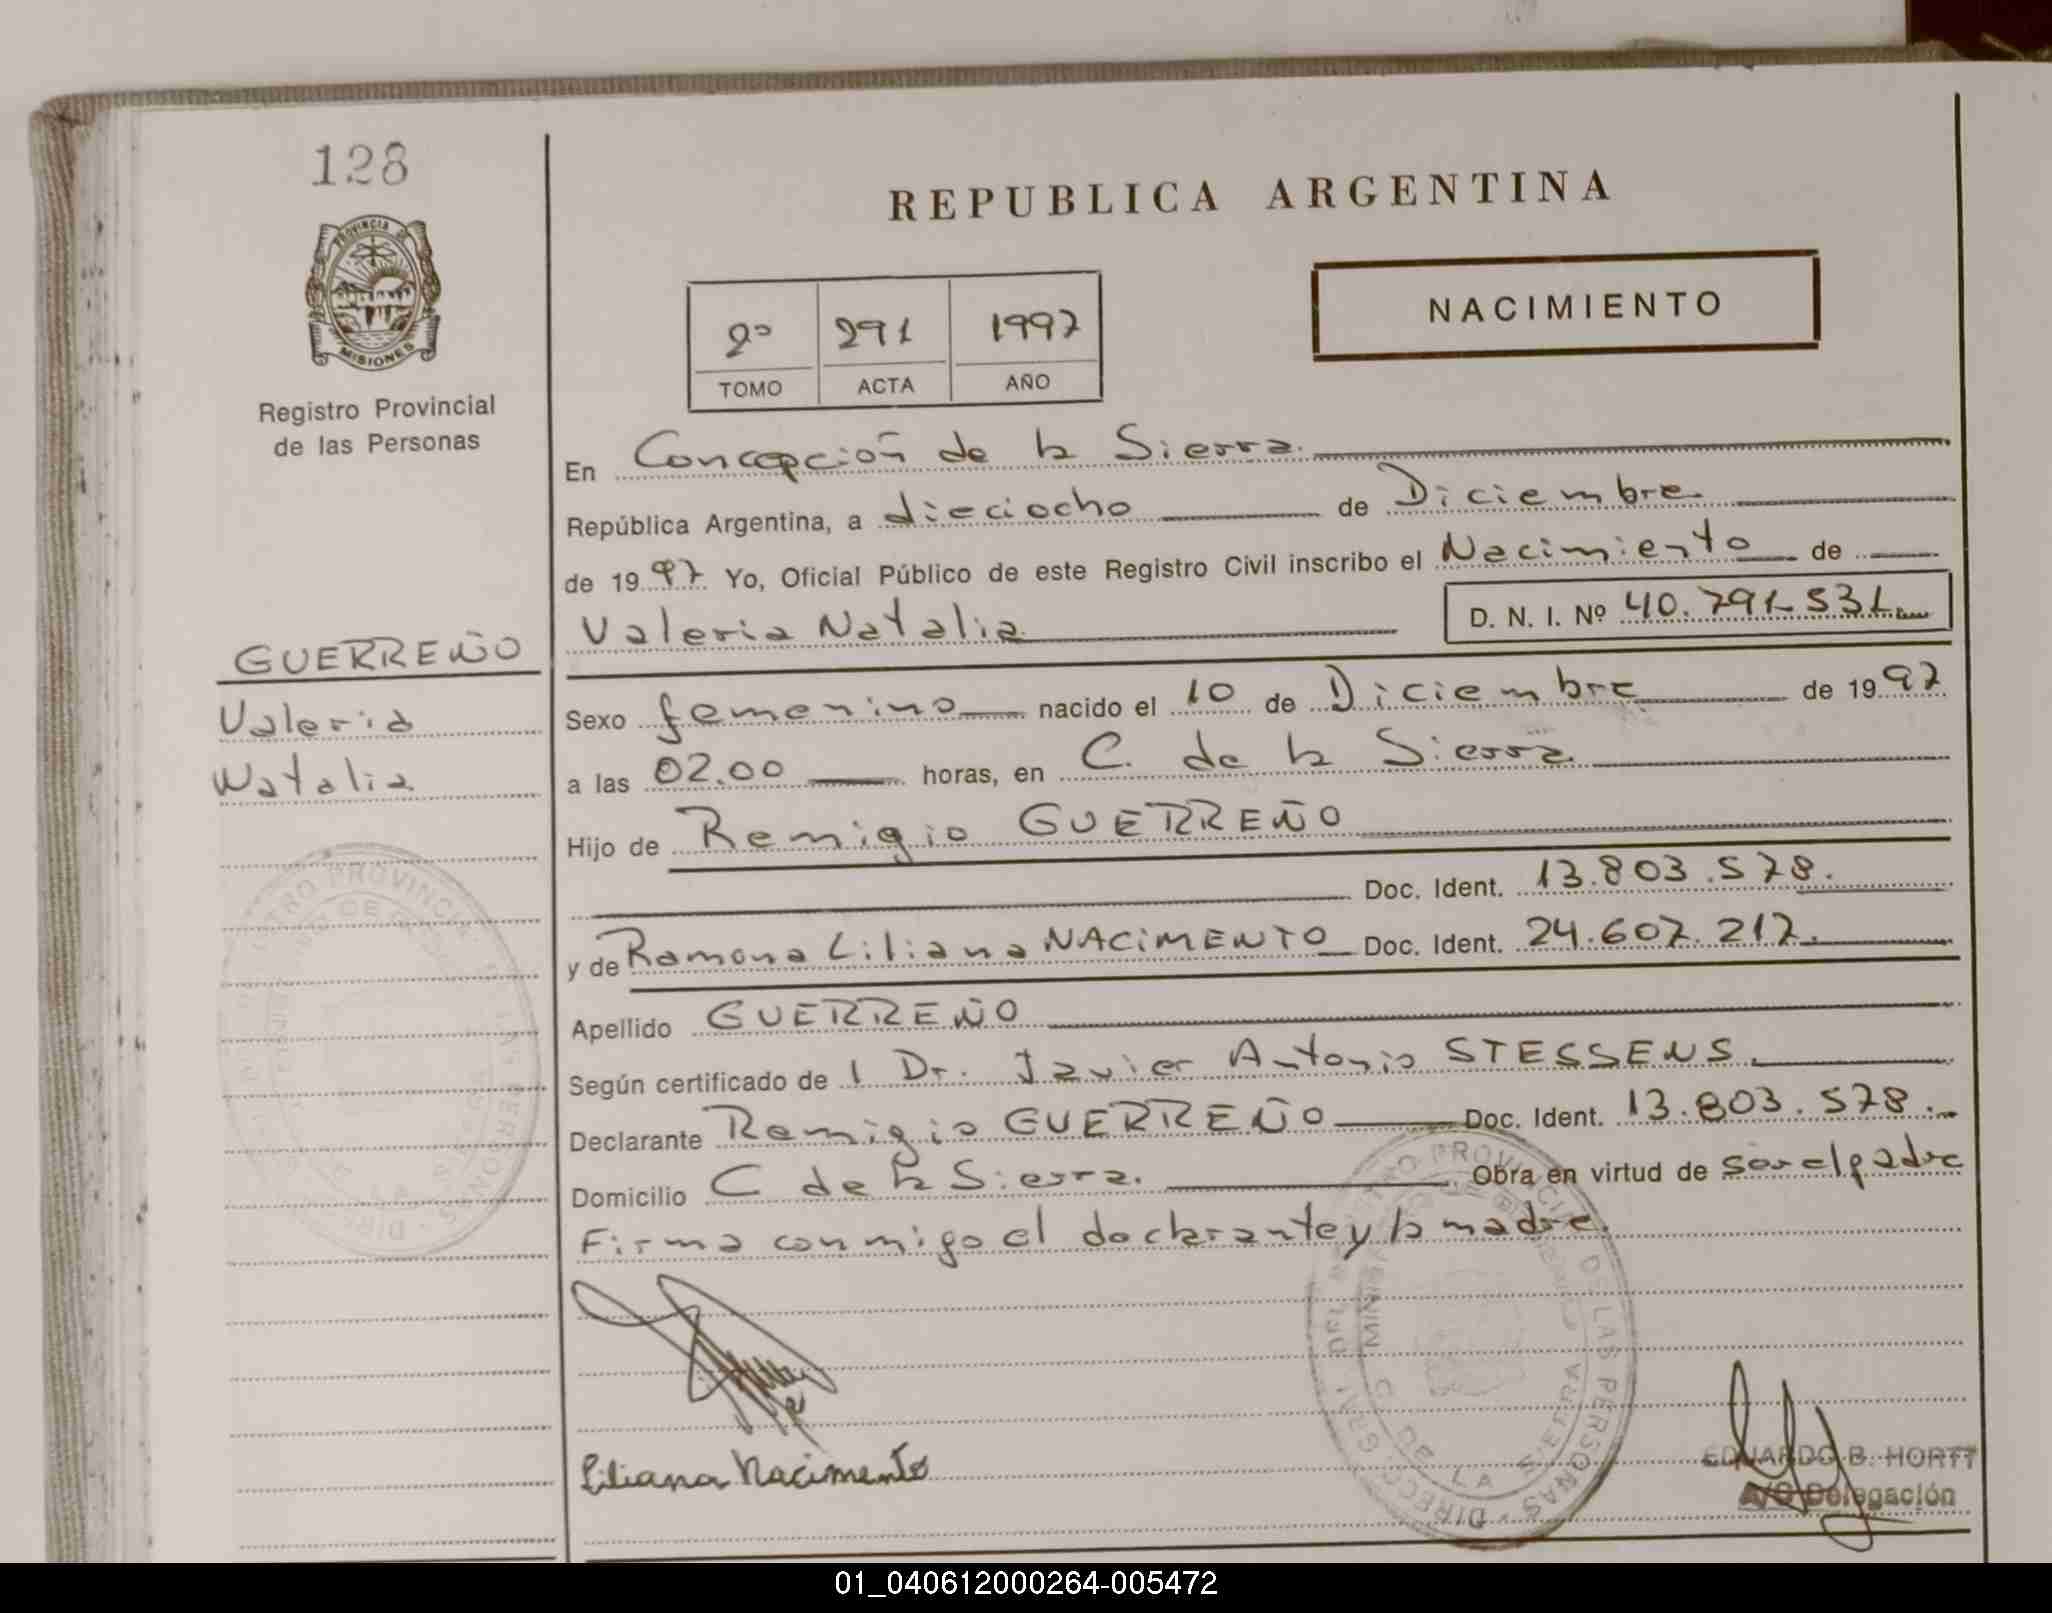 128
PROVINCIA DE
MISIONES
Registro Provincial
de las Personas
GUERREÑO
Valeria
Natalia
REPUBLICA ARGENTINA
NACIMIENTO
2º 291 1997
TOMO ACTA AÑO
En Concepción de la Sierra.
República Argentina, a dieciocho de Diciembre
de 1997 Yo, Oficial Público de este Registro Civil inscribo el Nacimiento de
Valeria Natalia D. N. I. Nº 40.791.531.
Sexo femenino nacido el 10 de Diciembre de 1997
a las 02.00 horas, en C. de la Sierra
Hijo de Remigio GUERREÑO
Doc. Ident. 13.803.578.
y de Ramona Liliana NACIMENTO Doc. Ident. 24.607.217.
Apellido GUERREÑO
Según certificado de l Dr. Javier Antonio STESSENS.
Declarante Remigio GUERREÑO Doc. Ident. 13.803.578.
Domicilio C de la Sierra. Obra en virtud de ser el padre
Firma conmigo el declarante y la madre.
Liliana Nacimento
C. DE LA SIERRA
EDUARDO B. HORTT
A/C Delegación
01_040612000264-005472